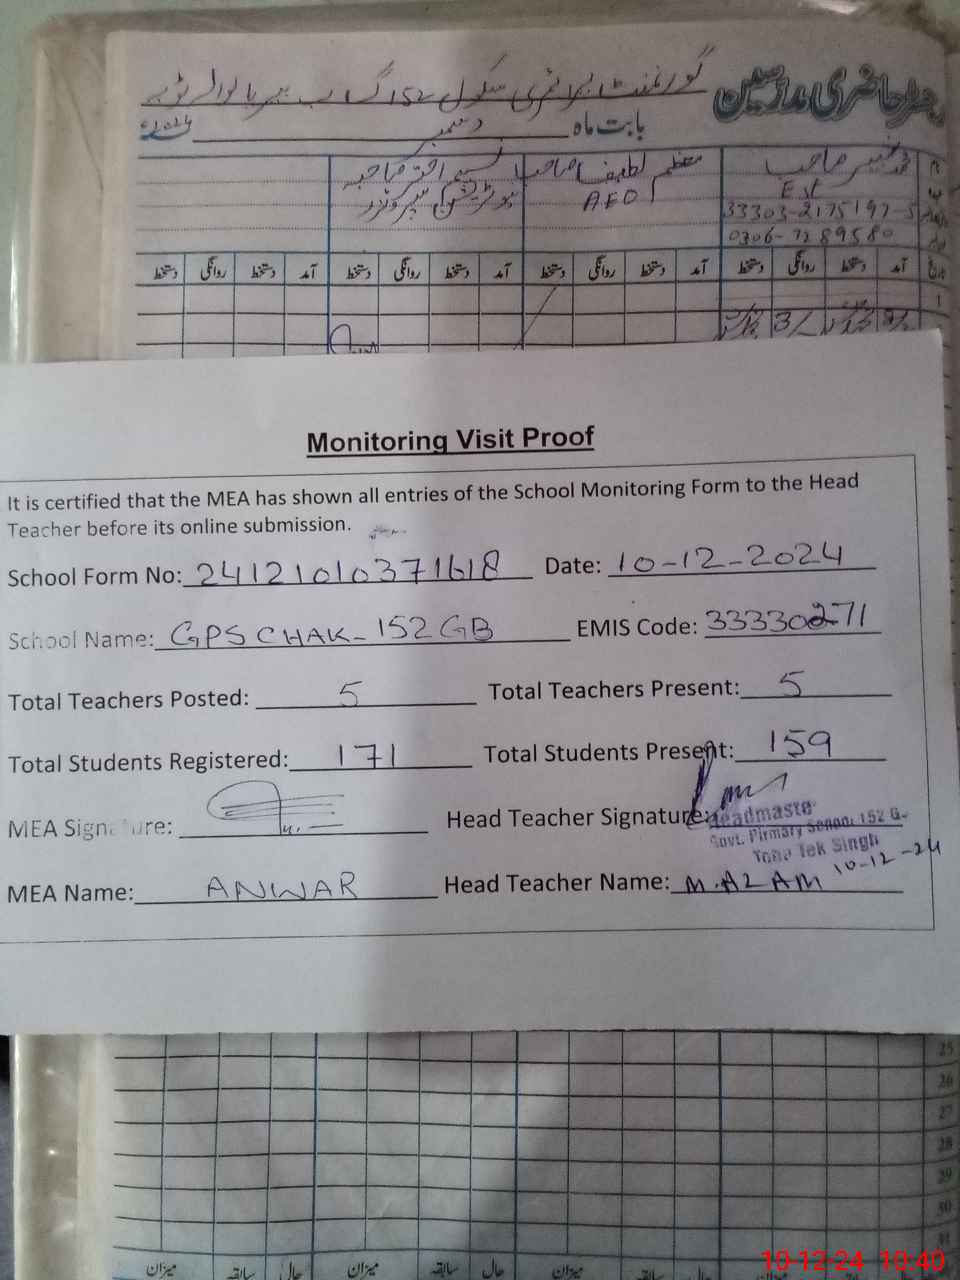 رجسٹر حاضری مدرسین
گورنمنٹ پرائمری سکول 152 گ ب
بابت ماہ دسمبر 2024
صاحب معظم لطیف صاحب نسیم اختر صاحبہ
EST AEO
33303-2175197-5
0306-7289580
آمد دستخط روانگی دستخط آمد دستخط روانگی دستخط آمد دستخط روانگی دستخط آمد دستخط روانگی دستخط
Monitoring Visit Proof
It is certified that the MEA has shown all entries of the School Monitoring Form to the Head
Teacher before its online submission.
School Form No: 24121010371618 Date: 10-12-2024
School Name: GPS CHAK-152 GB EMIS Code: 33330271
Total Teachers Posted: 5 Total Teachers Present: 5
Total Students Registered: 171 Total Students Present: 159
MEA Signature: Head Teacher Signature:
Headmaste
Govt. Pirmary School 152 G
Toba Tek Singh
10-12-24
MEA Name: ANWAR Head Teacher Name: M.AZAM
25
26
27
28
29
30
31
میزان سابقہ حال میزان سابقہ حال میزان سابقہ حال میزان
10-12-24 10:40